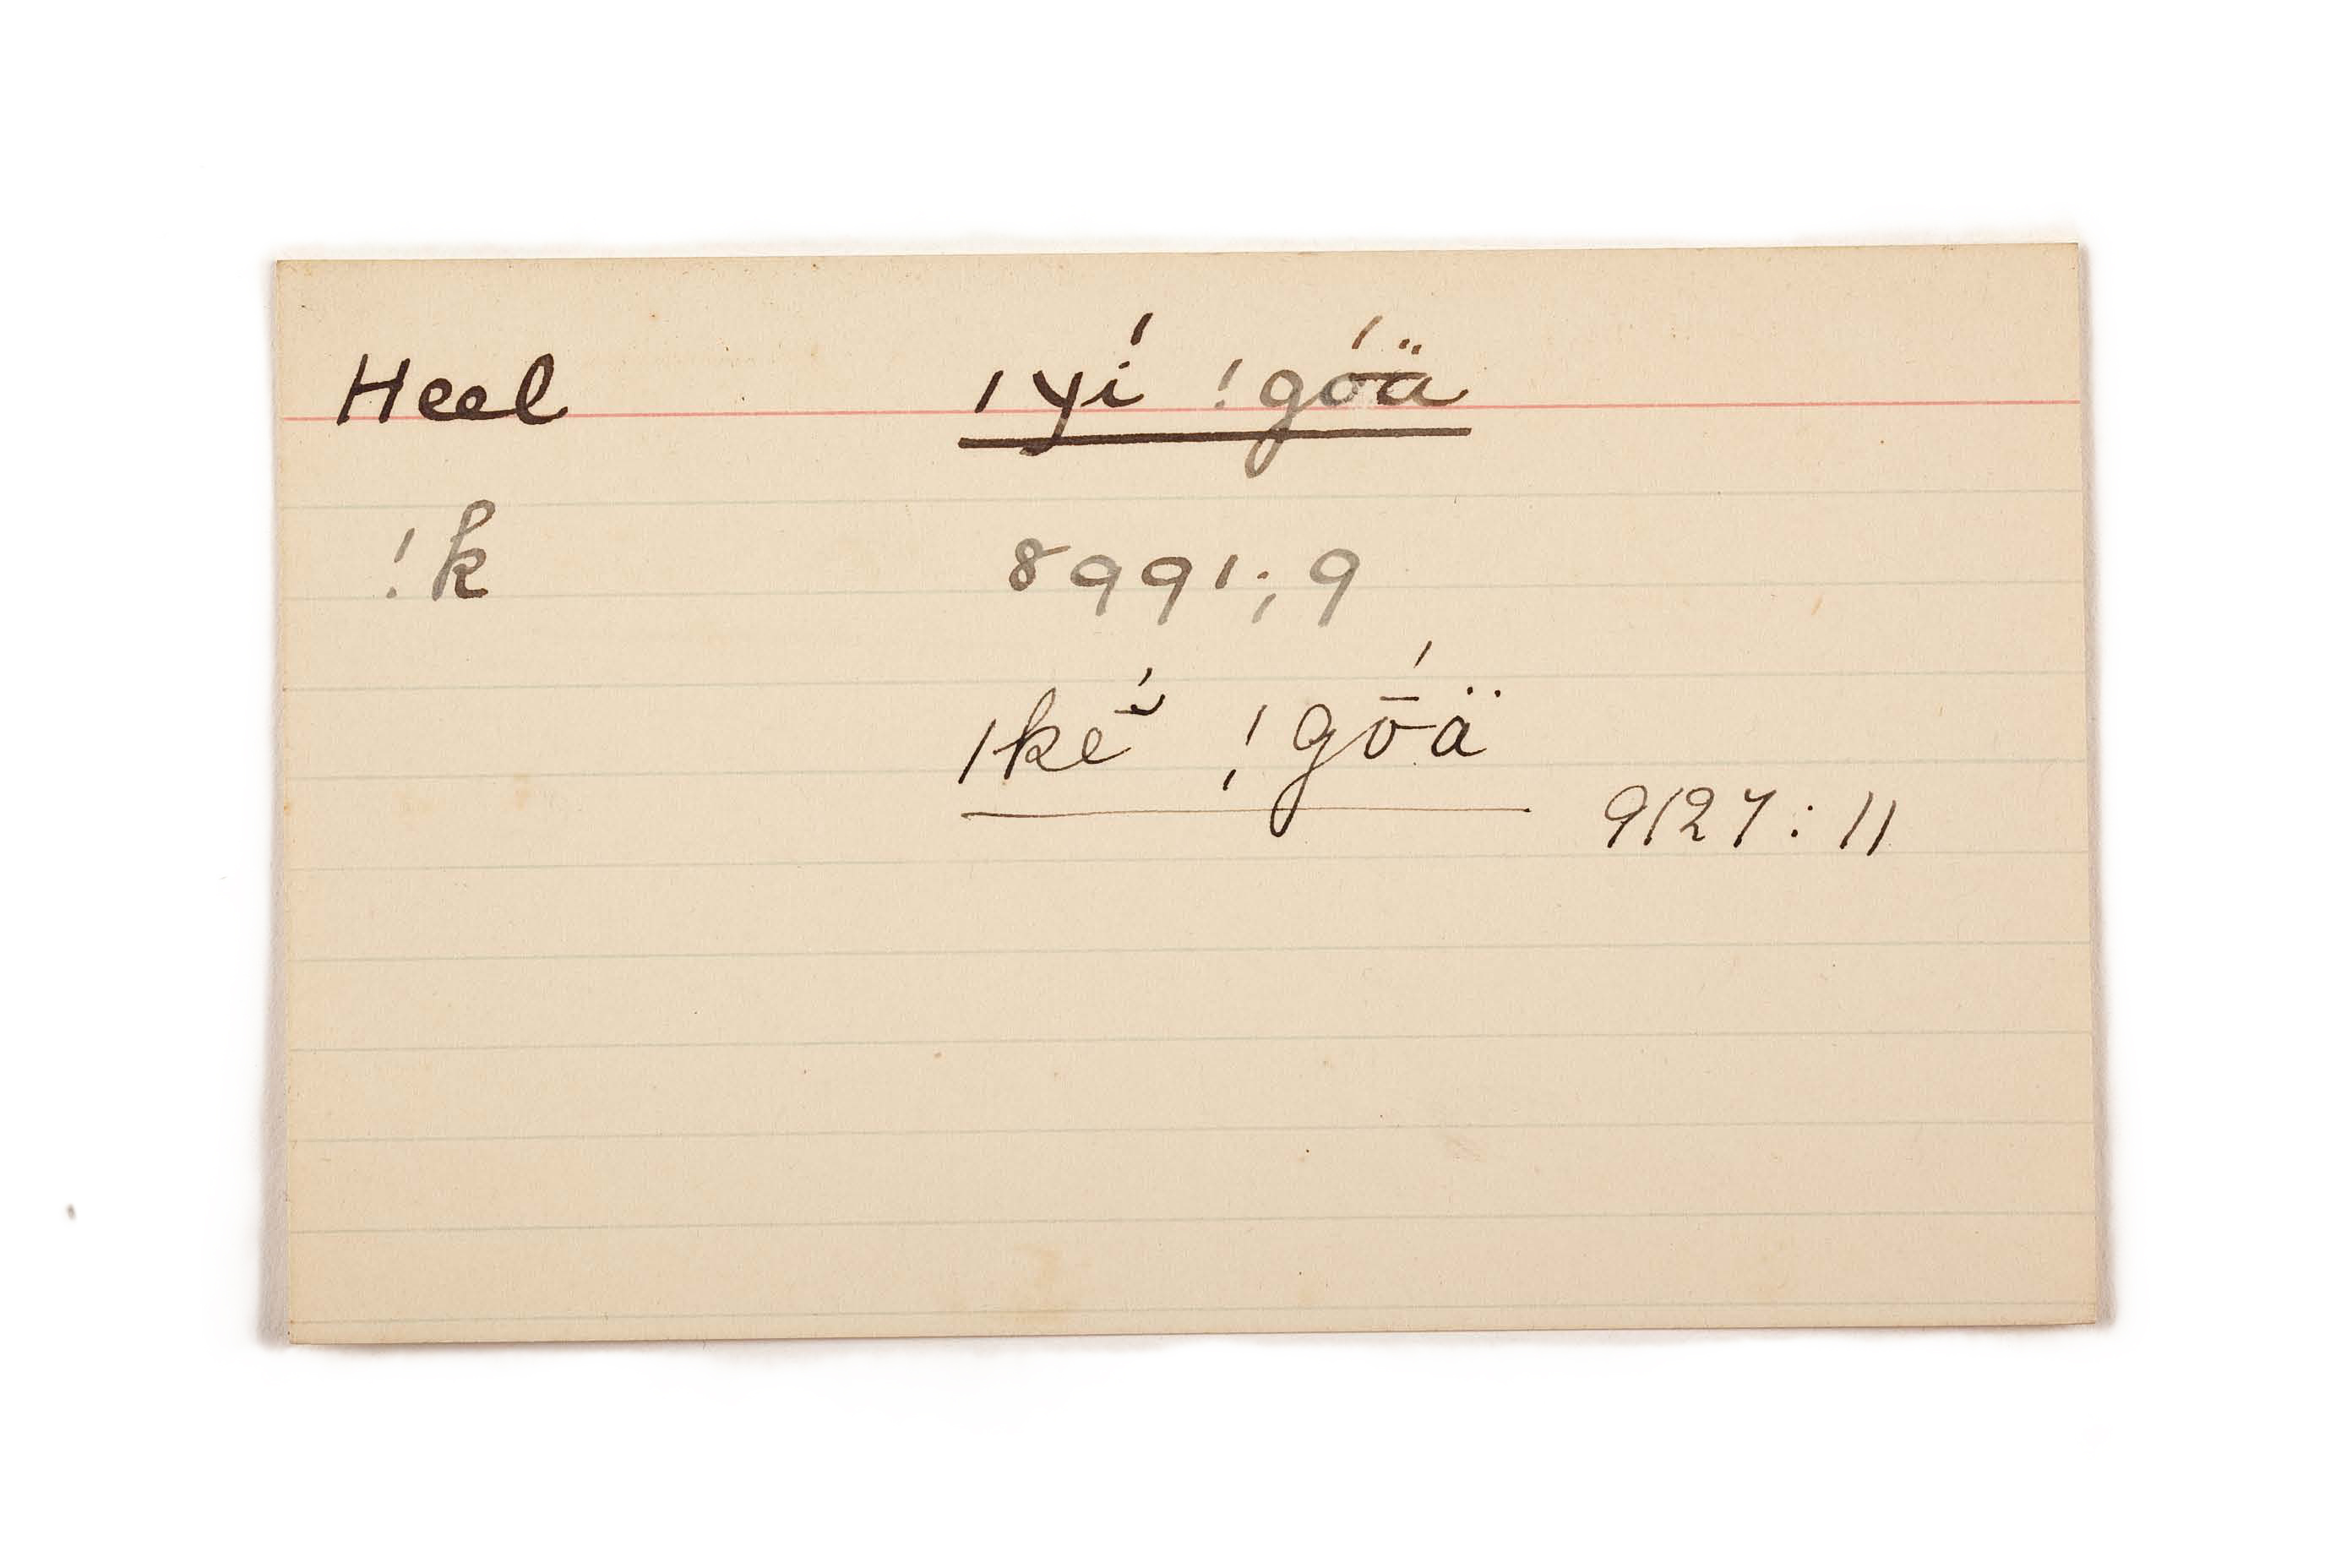 Heel ǀyí ǃgóä
ǃk 8991;9
ǀkḗ̆ ǃgṓä
9127:11